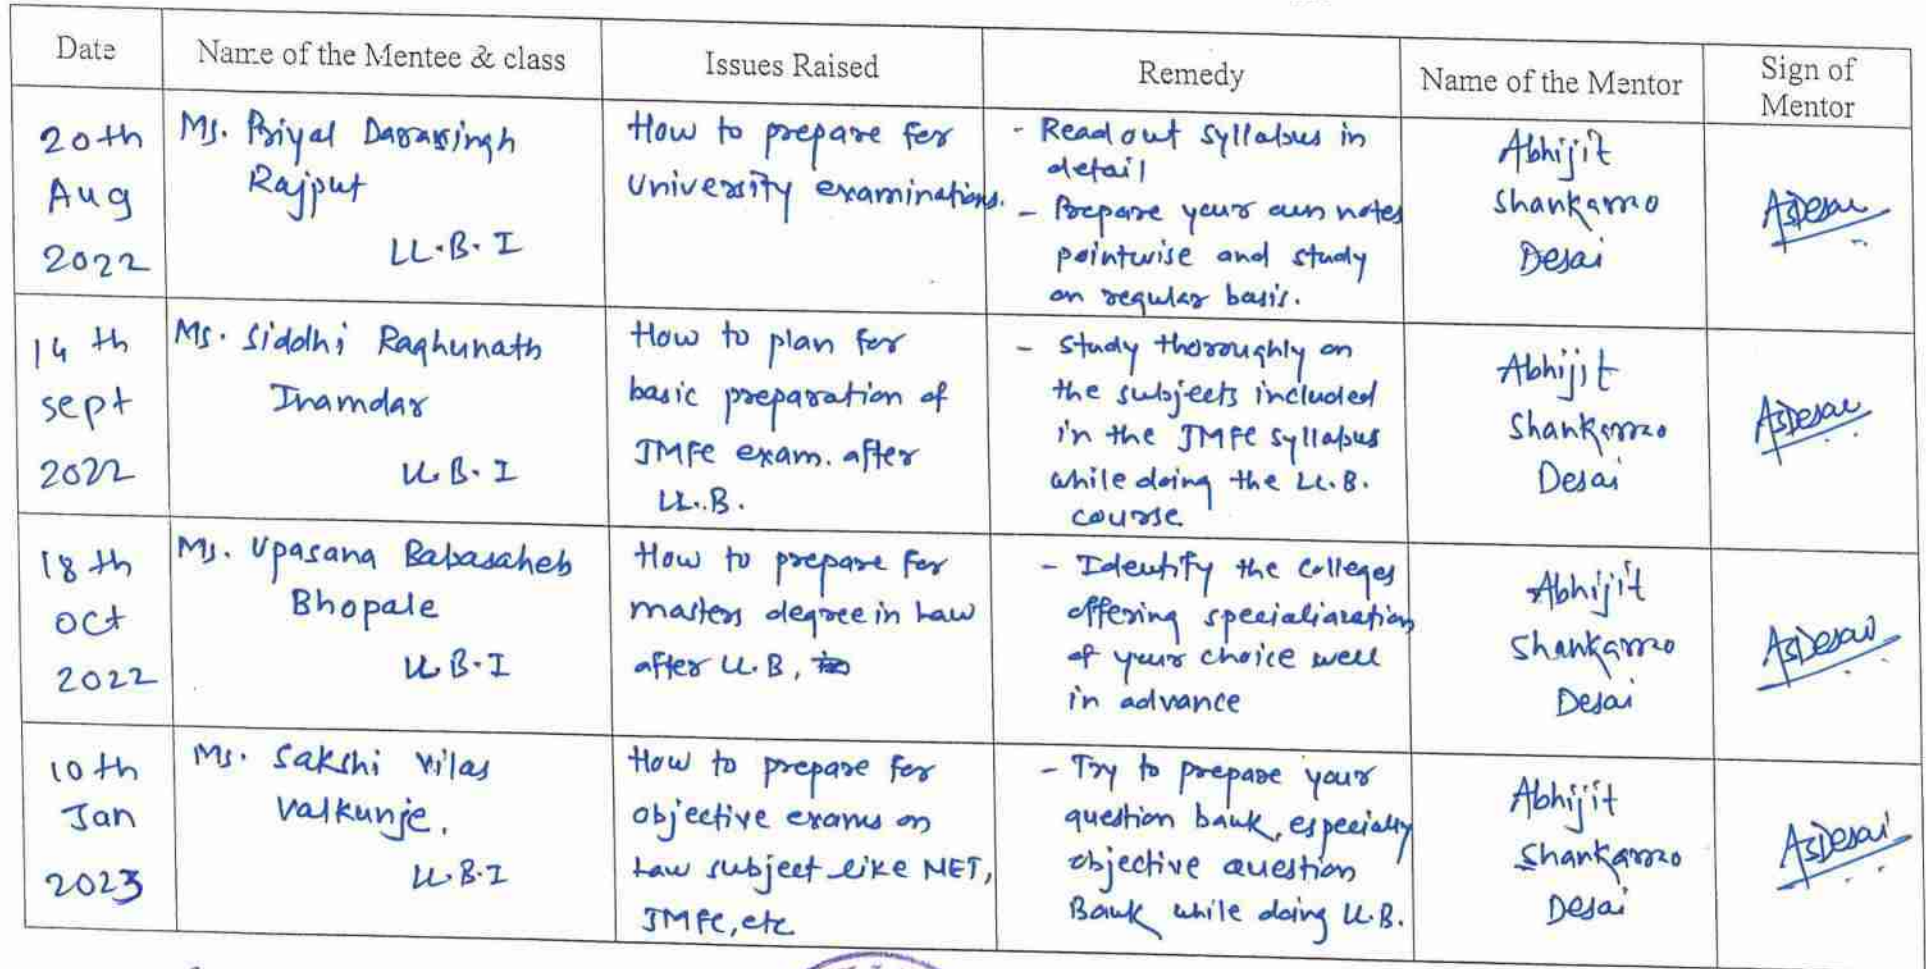 Date
Name of the Mentee & class
Issues Raised
Remedy
Name of the Mentor
Sign of
Mentor
20th
Aug
2022
Ms. Priyal Darasingh
Rajput
LL.B. I
How to prepare for
University examinations.
- Read out syllabus in
detail
- Prepare your own notes
pointwise and study
on regular basis.
Abhijit
Shankarrao
Desai
ASDesai
14 th
sept
2022
Ms. Siddhi Raghunath
Inamdar
LL.B. I
How to plan for
basic preparation of
JMFC exam. after
LL.B.
- Study thoroughly on
the subjects included
in the JMFC syllabus
while doing the LL.B.
course
Abhijit
Shankarrao
Desai
ASDesai
18 th
Oct
2022
Ms. Upasana Babasaheb
Bhopale
LL.B. I
How to prepare for
masters degree in Law
after LL.B,
- Identify the colleges
offering specialiazation
of your choice well
in advance
Abhijit
Shankarrao
Desai
ASDesai
10 th
Jan
2023
Ms. Sakshi Vilas
Valkunje.
LL.B.I
How to prepare for
objective exams on
Law subject like NET,
JMFC, etc
- Try to prepare your
question bank, especially
objective question
Bank while doing LL.B.
Abhijit
Shankarrao
Desai
ASDesai